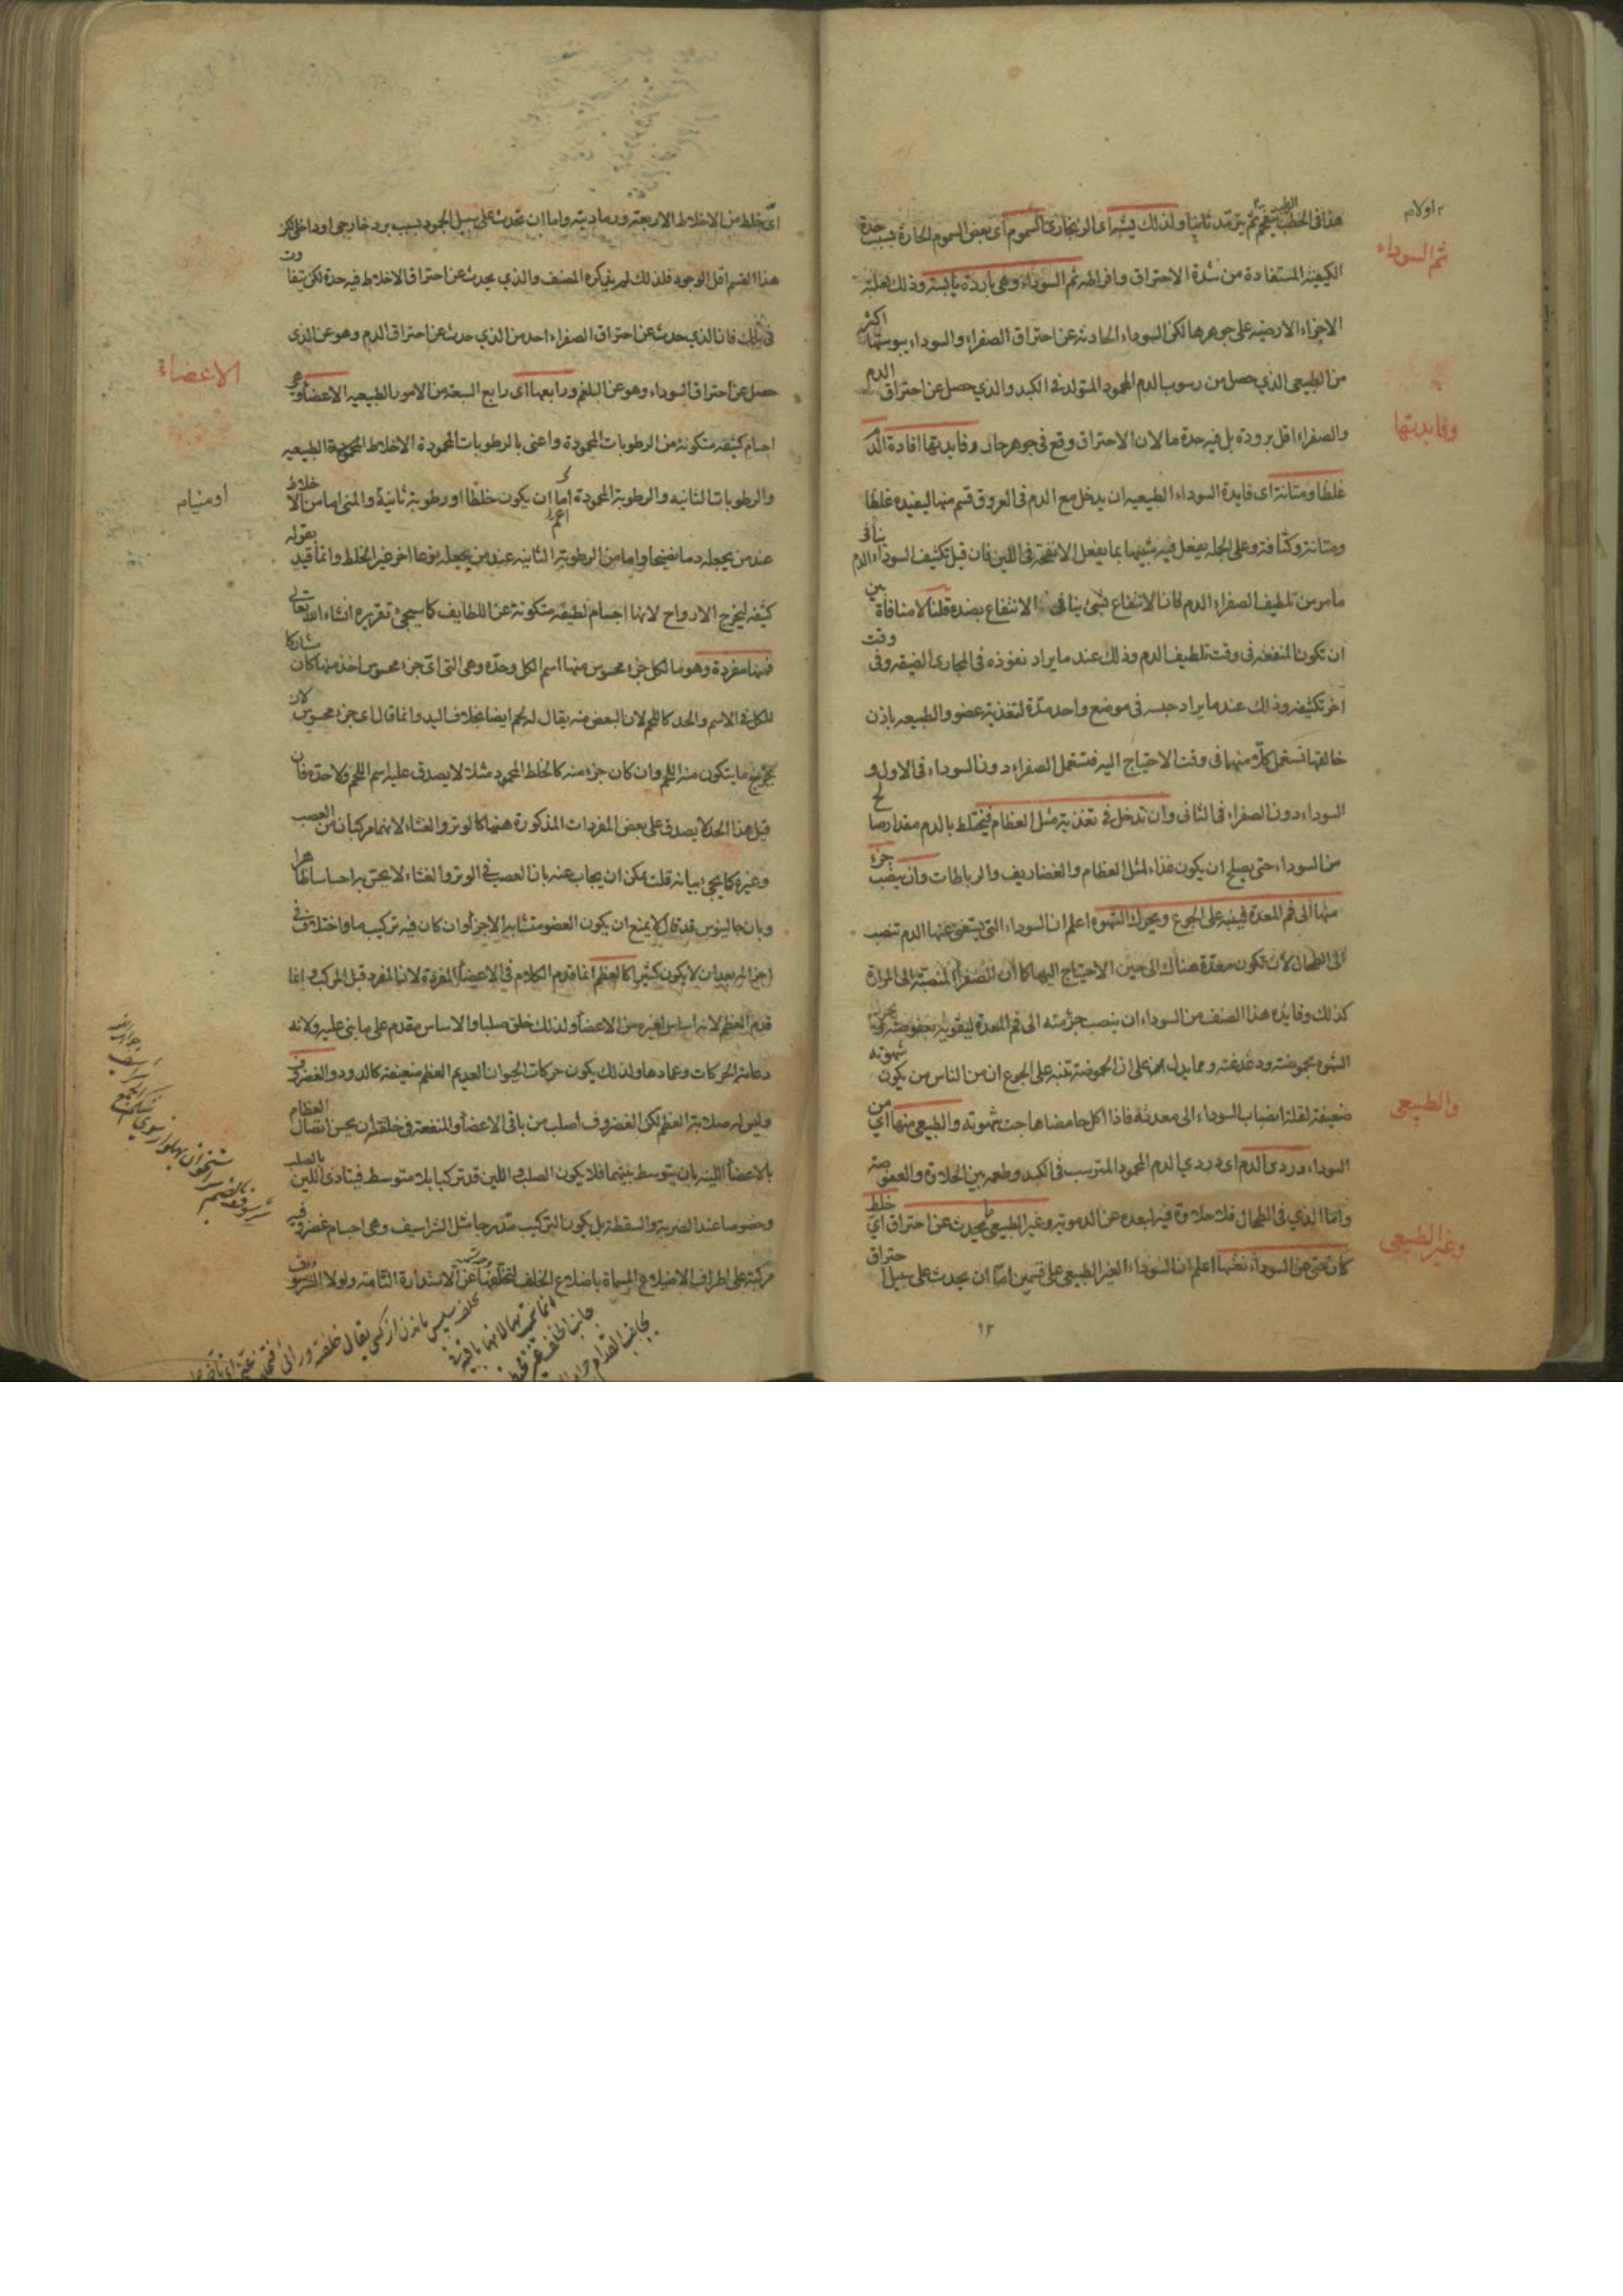 هذا فى الحطب يتفحم ثم يترمد ثانيا ولذلك يشبه اى الزنجارى السموم اى بعض السموم الحارة بسبب حدة
ثم السوداء
الكيفية المستفادة من شدة الاحتراق وافراطه ثم السوداء وهى باردة يابسة وذلك لغلبة
الاجزاء الارضية على جوهرها لكن السوداء الحادثة عن احتراق الصفراء والسوداء يبوستها اكثر
من الطبيعى الذي حصل من رسوب الدم المحمود المتولد فى الكبد والذي حصل عن احتراق الدم
وفايدتها
والصفراء اقل برودة بل فيه حدة ما لان الاحتراق وقع فى جوهر حار وفايدتها افادة الدم
غلظا ومتانة اى فايدة السوداء الطبيعية ان يدخل مع الدم فى العروق قسم منها ليفيده غلظا
ومتانة وكثافة وعلى الجملة يفعل فيه شبيها بما يفعل الانفحة فى اللبن فان قيل تكثيف السوداء الدم ينافى
ما مر من تلطيف الصفراء الدم فان الانتفاع بشئ ينافى الانتفاع بضده قلنا لا منافاة بين
ان تكون المنفعة فى وقت تلطيف الدم وذلك عند ما يراد نفوذه فى المجارى الضيقة وفى وقت
اخر تكثيفه وذلك عند ما يراد حبسه فى موضع واحد مدة لتغذية عضو والطبيعة باذن
خالقها تستعمل كلا منهما فى وقت الاحتياج اليه فتستعمل الصفراء دون السوداء فى الاول و
السوداء دون الصفراء فى الثانى وان تدخل فى تغذية مثل العظام فيختلط بالدم مقدار صالح
من السوداء حتى يصلح ان يكون غذاء لمثل العظام والغضاريف والرباطات وان ينصب جزء
منها الى فم المعدة فينبه على الجوع ويحرك الشهوة اعلم ان السوداء التى يستغنى عنها الدم تنصب
الى الطحال لان تكون معدة هناك الى حين الاحتياج اليها كما ان الصفراء المنصبة الى المرارة
كذلك وفايدة هذا الصنف من السوداء ان ينصب جزء منه الى فم المعدة ليقويه بعفوصته
الشهوة بحموضته ودغدغته ومما يدل على ان الحموضة تنبه على الجوع ان من الناس من يكون شهوته
والطبيعى
ضعيفة لقلة انصباب السوداء الى معدته فاذا اكل حامضا هاجت شهوته والطبيعى منها اي من
السوداء دردى الدم اى دردي الدم المحمود المترسب فى الكبد وطعمه بين الحلاوة والعفوصة
واما الذي فى الطحال فلا حلاوة فيه لبعده عن الدموية وغير الطبيعى ما يحدث عن احتراق اي خلط
وغير الطبيعى
كان حتى عن السوداء نفسها اعلم ان السوداء الغير الطبيعى على قسمين اما ان يحدث على سبيل احتراق
١٢
اى خلط من الاخلاط الاربعة ورماديته واما ان تحدث على سبيل الجمود بسبب برد خارجى او داخلى لكن
هذا القسم اقل الوجود فلذلك لم يذكره المصنف والذي يحدث عن احتراق الاخلاط فيه حدة لكن يتفاوت
فى تلك فان الذي حدث عن احتراق الصفراء احد من الذي حدث عن احتراق الدم وهو عن الذى
الاعضاء
حصل عن احتراق السوداء وهو عن البلغم ورابعها اى رابع السبعة من الامور الطبيعية الاعضاء وهى
اجسام كثيفة متكونة من الرطوبات المحمودة واعنى بالرطوبات المحمودة الاخلاط المحمودة الطبيعية
والرطوبات الثانية والرطوبة المحمودة اعم اما ان يكون خلطا او رطوبة ثانية والمنى اما من الاخلاط
عند من يجعله دما نضيجا واما من الرطوبة الثانية عند من يجعله نوعا اخر غير الخلط وانما قيد بقوله
كثيفة ليخرج الارواح لانها اجسام لطيفة متكونة عن اللطايف كما سيجئ تقريره انشاء الله تعالى
فمنها مفردة وهو ما لكل جزء محسوس منها اسم الكل وحده وهى التى اى جزء محسوس اخذ منها كان مشاركا
للكل فى الاسم والحد كاللحم لان البعض منه يقال له لحم ايضا بخلاف اليد وانما قال اى جزء محسوس لان
يخرج ما يتكون منه اللحم وان كان جزء منه كالخلط المحمود مثلا لا يصدق عليه اسم اللحم ولا حده فان
قيل هذا الحد لا يصدق على بعض المفردات المذكورة ههنا كالوتر والغشاء لانهما مركبان من العصب
وغيره كما يجئ بيانه قلت يمكن ان يجاب عنه بان العصب فى الوتر والغشاء لا يحس به احساسا ظاهرا
وبان جالينوس قد قال لا يمنع ان يكون العضو متشابه الاجزاء وان كان فيه تركيب ما واختلاف فى
اجزائه بعد ان لا يكون كثيرا كالعظم انما قدم الكلام فى الاعضاء المفردة لان المفرد قبل المركب وانما
قدم العظم لانه اساس لغيره من الاعضاء ولذلك خلق صلبا والاساس مقدم على ما بنى عليه ولانه
دعامة الحركات وعمادها ولذلك يكون حركات الحيوان العديم العظم ضعيفة كالدود والغضروف
وليس له صلابة العظم لكن الغضروف اصلب من باقى الاعضاء والمنفعة فى خلقته ان يحسن اتصال العظام
بالاعضاء اللينة بان يتوسط بينهما فلا يكون الصلب واللين قد تركبا بلا متوسط فيتاذى اللين بالصلب
وخصوصا عند الضربة والسقطة بل يكون التركيب متدرجا مثل الشراسيف وهى اجسام غضروفية
مركبة على اطراف الاضلاع المسماة باضلاع الخلف لتخلفها عن الاستدارة التامة ولولا الشرسوف